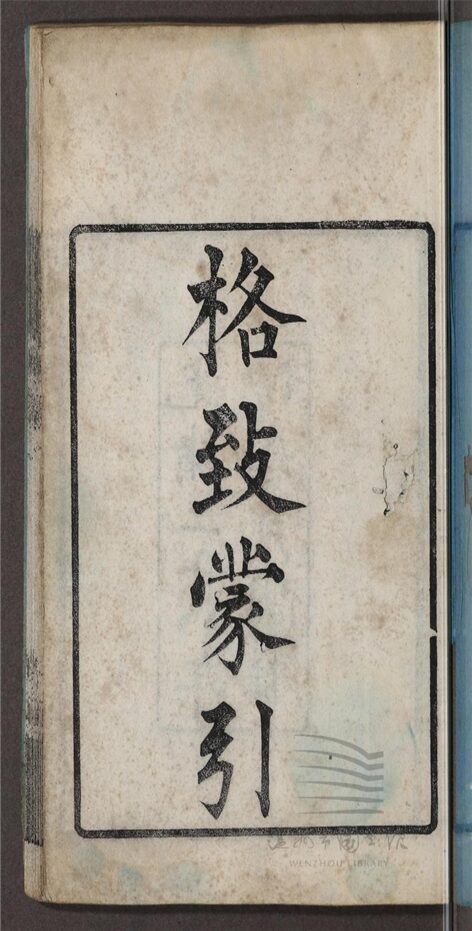 格致蒙引
温州市图书馆
WENZHOU LIBRARY